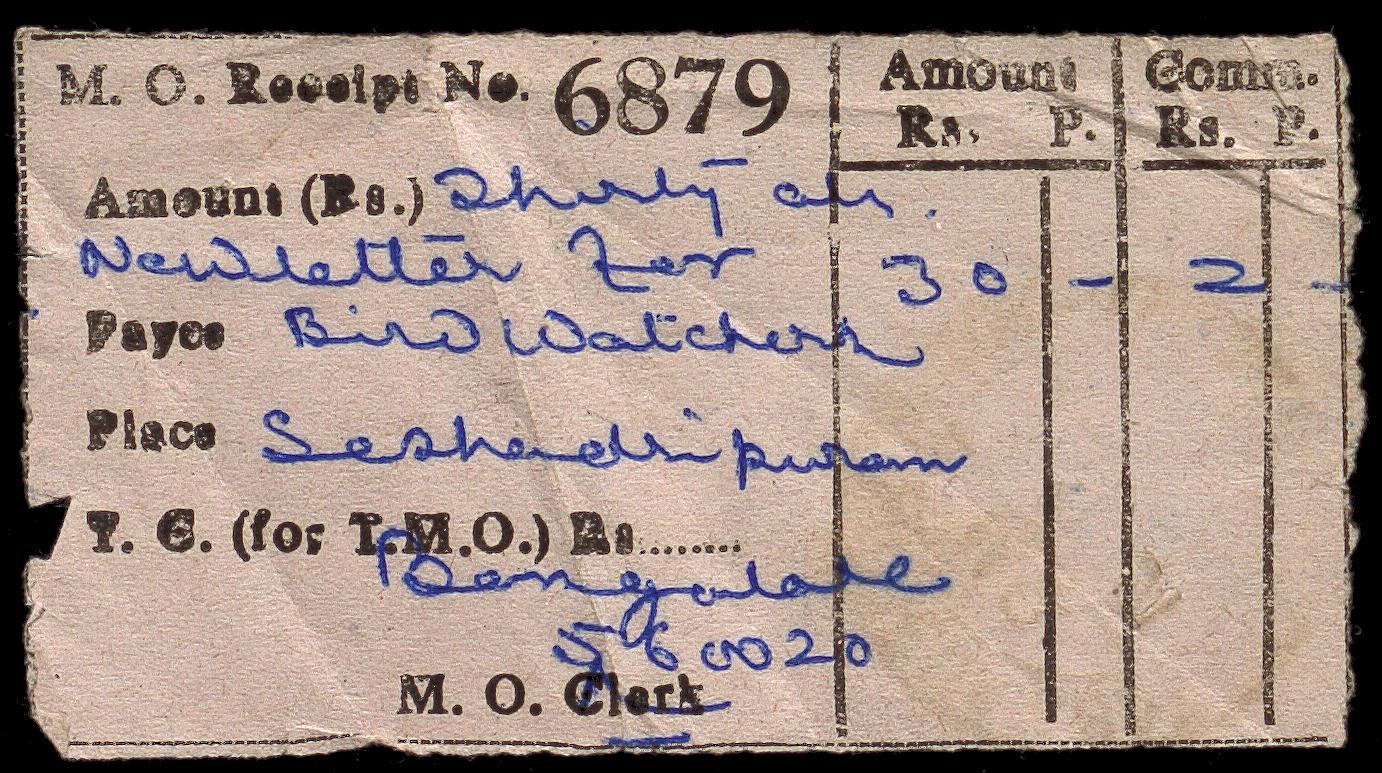 M. O. Receipt No. 6879
Amount Comm.
Rs. P. Rs. P.
Amount (Rs.) Thirty only.
Newsletter For 30 - 2 -
Payee Bird Watchers
Place Seshadripuram
T. C. (for T.M.O.) Rs........
Bangalore
560020
M. O. Clerk